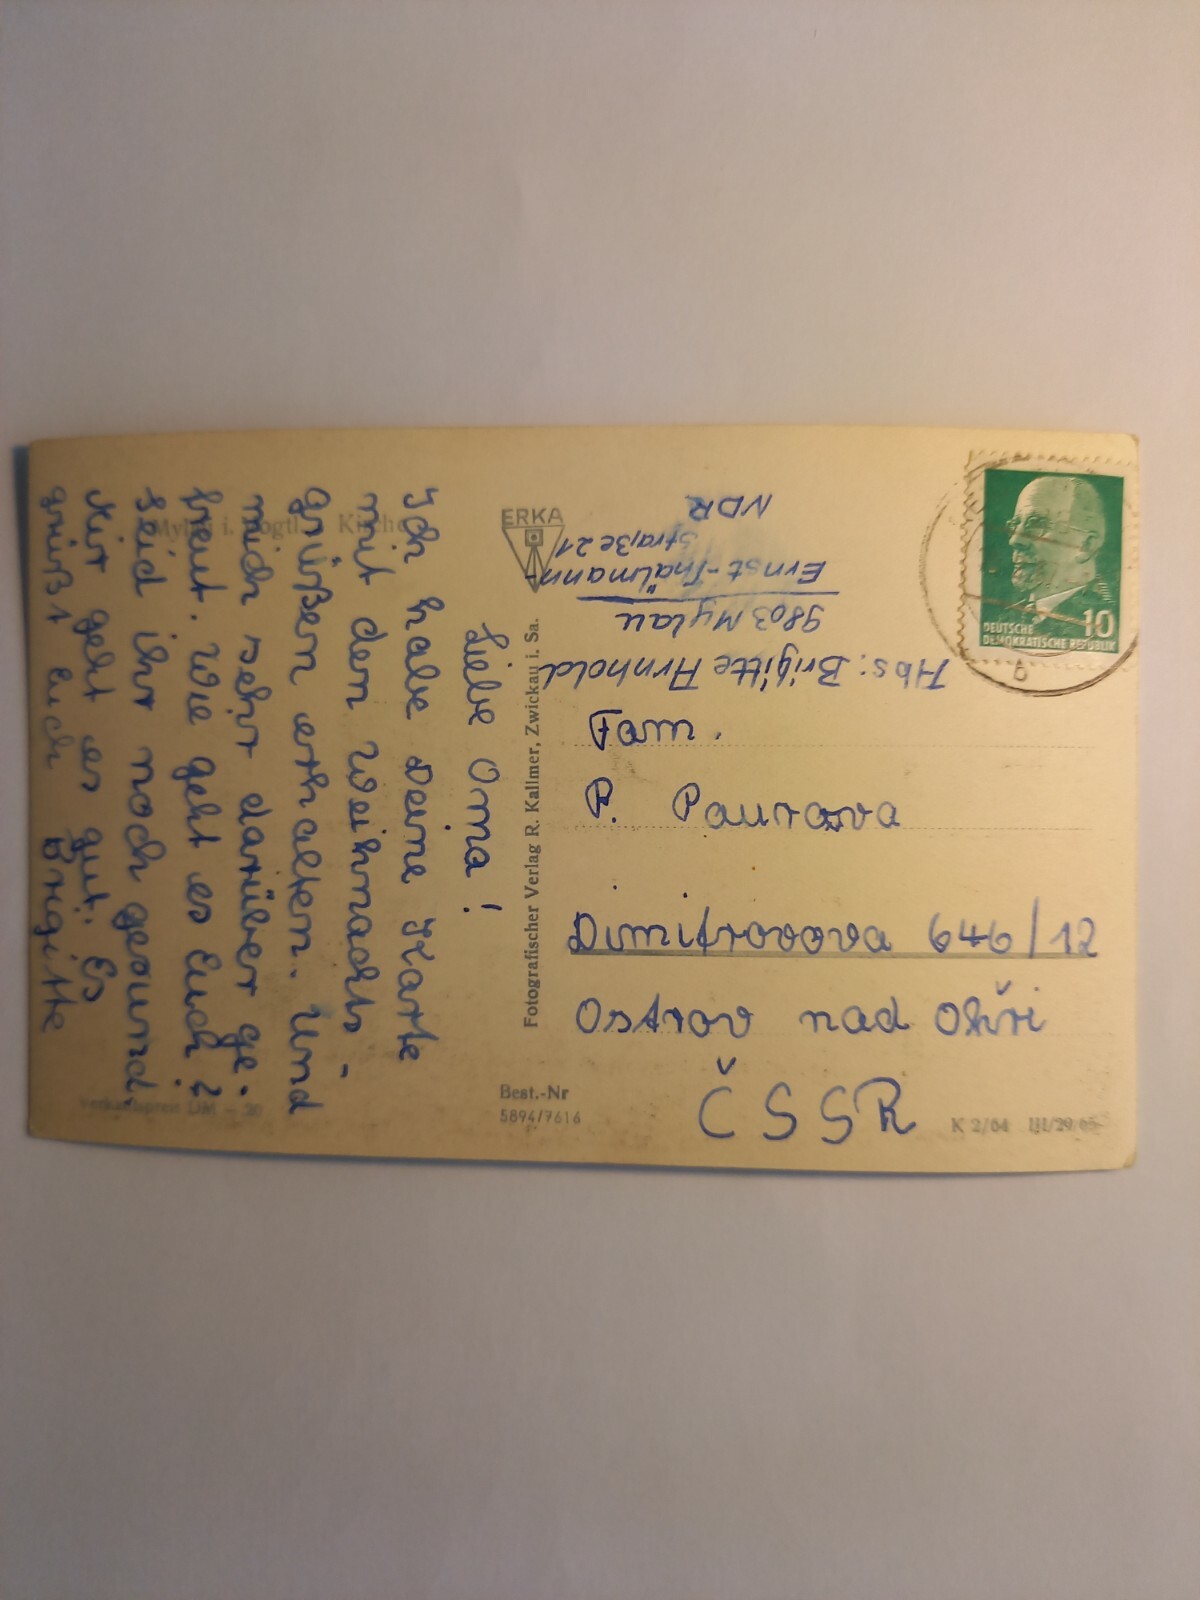 Liebe Oma!
Ich habe Deine Karte
mit den Weihnachts-
grüßen erhalten. Und
mich sehr darüber ge-
freut. Wie geht es Euch?
Seid ihr noch gesund.
Mir geht es gut. Es
grüßt Euch Brigitte
Mylau i. Vogtl. Kirche
Verkaufspreis DM -.20
ERKA
Fotografischer Verlag R. Kallmer, Zwickau i. Sa.
Best.-Nr
5894/7616
DEUTSCHE
DEMOKRATISCHE REPUBLIK
10
Abs: Brigitte Arnhold
9803 Mylau
Ernst-Thälmann-
Straße 21
NDR
Fam.
P. Paurova
Dimitrovova 646/12
Ostrov nad Ohři
ČSSR
K 2/64 III/29/65